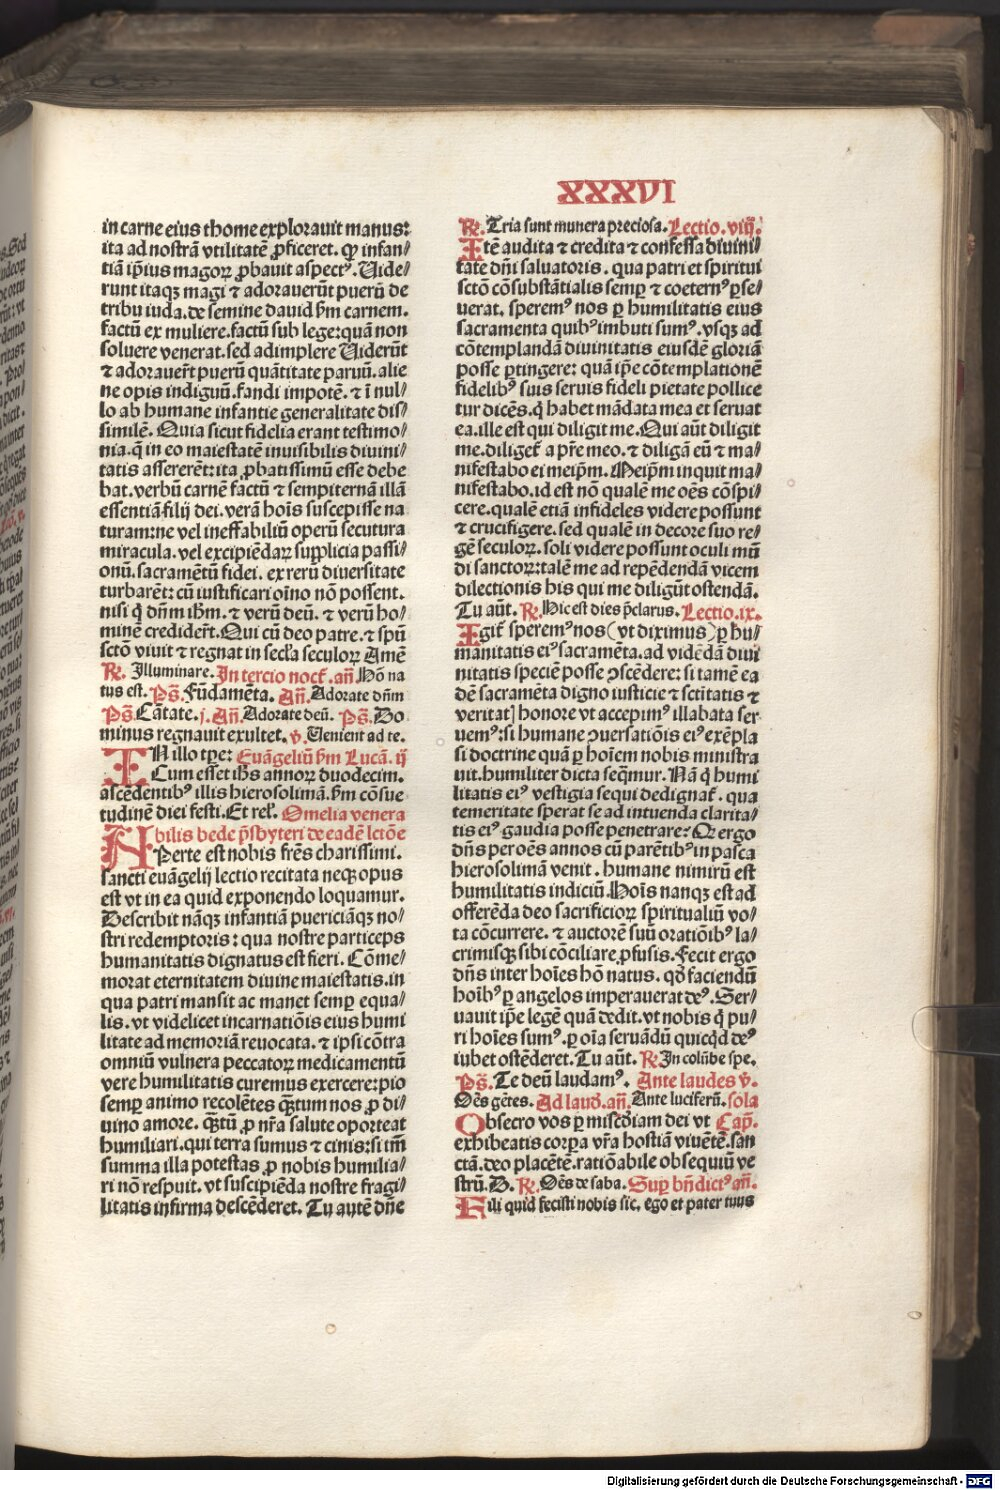 XXXVI
in carne eius thome explorauit manus:
ita ad nostrā vtilitatē ꝓficeret. qꝫ infan⸗
tiā ip̄ius magoꝝ ꝓbauit aspectꝰ. Uide⸗
runt itaqꝫ magi ⁊ adorauerūt puerū de
tribu iuda. de semine dauid ẜm carnem.
factū ex muliere. factū sub lege: quā non
soluere venerat. sed adimplere Uiderūt
⁊ adorauer̄t puerū quātitate paruū. alie
ne opis indiguū. fandi impotē. ⁊ ī nul⸗
lo ab humane infantie generalitate dis⸗
similē. Quia sicut fidelia erant testimo⸗
nia. q̇ in eo maiestatē inuisibilis diuini⸗
tatis assererēt: ita ꝓbatissimū esse debe
bat. verbū carnē factū ⁊ sempiternā illā
essentiā filij dei. verā hoīs suscepisse na
turam: ne vel ineffabiliū operū secutura
miracula. vel excipiēdaꝝ supplicia passi⸗
onū. sacramētū fidei. ex rerū diuersitate
turbarēt: cū iustificari oīno nō possent.
nisi q̇ dn̄m ih̄m. ⁊ verū deū. ⁊ verū ho⸗
minē credider̄t. Qui cū deo patre. ⁊ spū
sctō viuit ⁊ regnat in secl̄a seculoꝝ Amē
℟. Illuminare. In tercio noct̄. an̄. Hō na
tus est. Ps̄. Fūdamēta. An̄. Adorate dn̄m
Ps̄. Cātate. j. An̄. Adorate deū. Ps̄. Do
minus regnauit exultet. v̇. Uenient ad te.
IN illo tꝑe: Euāgeliū ẜm Lucā. ij
Cum esset ih̄s annoꝝ duodecim.
ascēdentibꝰ illis hierosolimā. ẜm cōsue
tudinē diei festi. Et rel̄. Omelia venera
bilis bede p̄sbyteri de eadē lctōe
APerte est nobis frēs charissimi.
sancti euāgelij lectio recitata neqꝫ opus
est vt in ea quid exponendo loquamur.
Describit nāqꝫ infantiā puericiāqꝫ no⸗
stri redemptoris: qua nostre particeps
humanitatis dignatus est fieri. Cōme⸗
morat eternitatem diuine maiestatis. in
qua patri mansit ac manet semꝑ equa⸗
lis. vt videlicet incarnatiōis eius humi
litate ad memoriā reuocata. ⁊ ipsi cōtra
omniū vulnera peccatoꝝ medicamentū
vere humilitatis curemus exercere: pio
semꝑ animo recolētes qꝫtum nos ꝓ di⸗
uino amore. qꝫtū ꝓ nr̄a salute oporteat
humiliari. qui terra sumus ⁊ cinis: si in̄
summa illa potestas ꝓ nobis humilia⸗
ri nō respuit. vt suscipiēda nostre fragi⸗
litatis infirma descēderet. Tu autē dn̄e
℟. Tria sunt munera preciosa. Lectio. viij.
ITē audita ⁊ credita ⁊ confessa diuini⸗
tate dn̄i saluatoris. qua patri et spiritui
sctō cōsubstātialis semꝑ ⁊ coeternꝰ ꝑse⸗
uerat. speremꝰ nos ꝑ humilitatis eius
sacramenta quibꝰ imbuti sumꝰ. vsqꝫ ad
cōtemplandā diuinitatis eiusdē gloriā
posse ꝑtingere: quā ip̄e cōtemplationē
fidelibꝰ suis seruis fideli pietate pollice
tur dicēs. q̇ habet mādata mea et seruat
ea. ille est qui diligit me. Qui aūt diligit
me. diliget̄ a pr̄e meo. ⁊ diligā eū ⁊ ma⸗
nifestabo ei meip̄m. Meip̄m inquit ma⸗
nifestabo. id est nō qualē me oēs cōspi⸗
cere. qualē etiā infideles videre possunt
⁊ crucifigere. sed qualē in decore suo re⸗
gē seculoꝝ. soli videre possunt oculi mū
di sanctoꝝ: talē me ad repēdendā vicem
dilectionis his qui me diligūt ostendā.
Tu aūt. ℟. Hic est dies p̄clarus. Lectio. ix.
IGit̄ speremꝰ nos (vt diximus) ꝑ hu⸗
manitatis eiꝰ sacramēta. ad vidēdā diui
nitatis speciē posse ꝯscēdere: si tamē ea
dē sacramēta digno iusticie ⁊ sctitatis ⁊
veritat] honore vt accepimꝰ illabata ser
uemꝰ: si humane ꝯuersatiōis eiꝰ exēpla
si doctrine quā ꝑ hoīem nobis ministra
uit. humiliter dicta seq̄mur. Nā q̇ humi
litatis eiꝰ vestigia sequi dedignat̄. qua
temeritate sperat se ad intuenda clarita⸗
tis eiꝰ gaudia posse penetrare? Q ergo
dn̄s per oēs annos cū parētibꝰ in pasca
hierosolimā venit. humane nimirū est
humilitatis indiciū. Hoīs nanqꝫ est ad
offerēda deo sacrificioꝝ spiritualiū vo⸗
ta cōcurrere. ⁊ auctorē suū oratiōibꝰ la⸗
crimisqꝫ sibi cōciliare ꝓfusis. Fecit ergo
dn̄s inter hoīes hō natus. qd̄ faciendū
hoībꝰ ꝑ angelos imperauerat deꝰ. Ser⸗
uauit ip̄e legē quā dedit. vt nobis q̇ pu⸗
ri hoīes sumꝰ. ꝑ oīa seruādū quicqd̄ deꝰ
iubet ostēderet. Tu aūt. ℟. In colūbe spe.
Ps̄. Te deū laudamꝰ. Ante laudes v̇.
Oēs gētes. Ad laud̄. an̄. Ante luciferū. sola
Obsecro vos ꝑ mis̄cdiam dei vt Cap̄.
exhibeatis corꝑa vr̄a hostiā viuētē. san
ctā. deo placētē. ratiōabile obsequiū ve
strū. D. ℟. Oēs de saba. Suꝑ bn̄dictꝰ an̄.
FIli quid fecisti nobis sic. ego et pater tuus
Digitalisierung gefördert durch die Deutsche Forschungsgemeinschaft - DFG